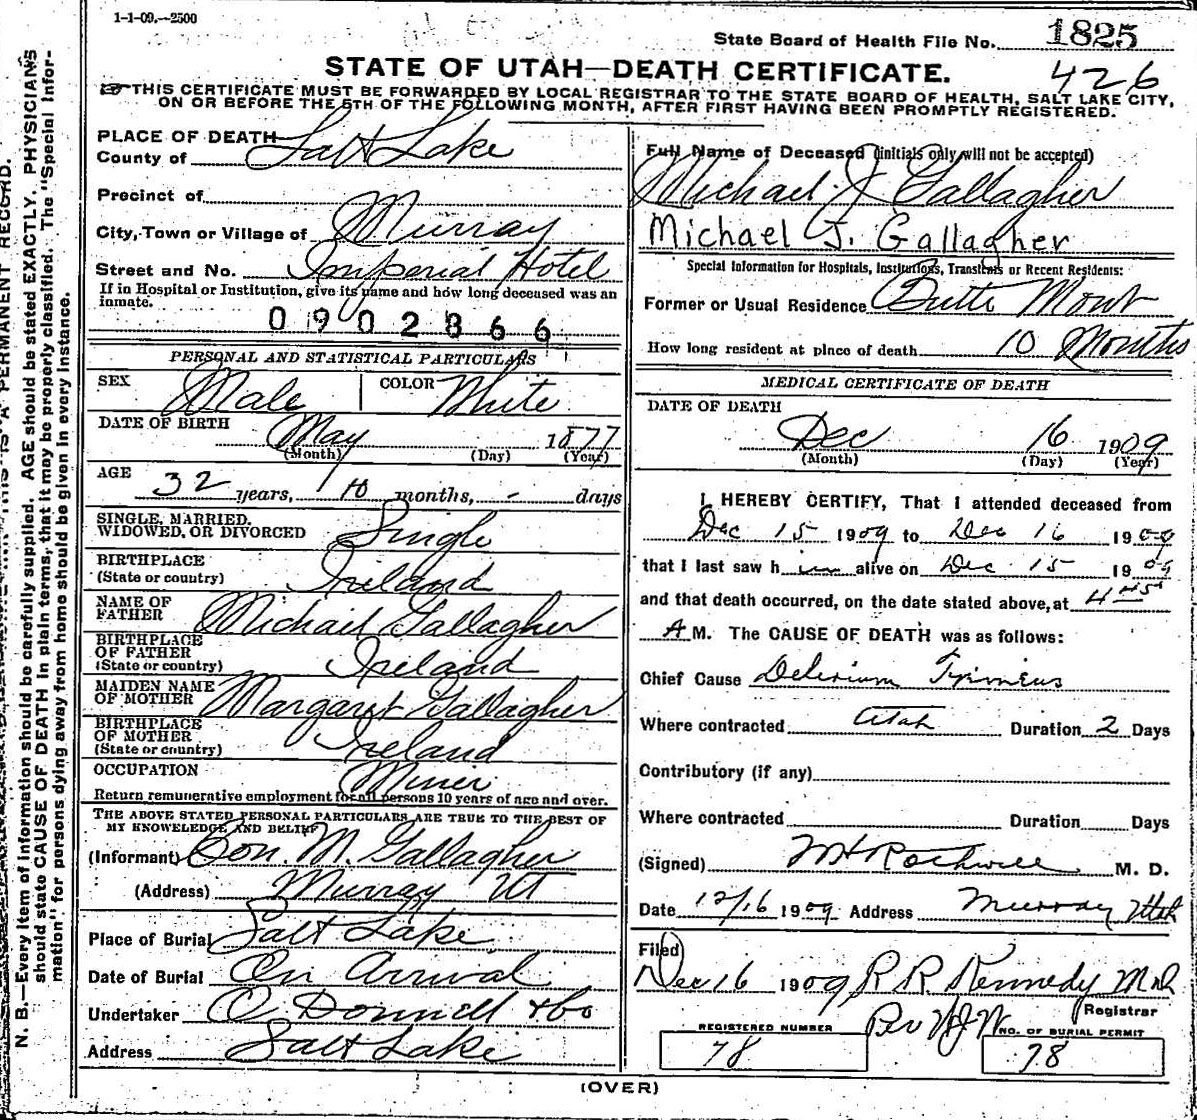 1-1-09.--2500
State Board of Health File No. 1825
STATE OF UTAH—DEATH CERTIFICATE.
426
THIS CERTIFICATE MUST BE FORWARDED BY LOCAL REGISTRAR TO THE STATE BOARD OF HEALTH, SALT LAKE CITY,
ON OR BEFORE THE 5TH OF THE FOLLOWING MONTH, AFTER FIRST HAVING BEEN PROMPTLY REGISTERED.
N. B.—Every item of information should be carefully supplied. AGE should be stated EXACTLY. PHYSICIANS
should state CAUSE OF DEATH in plain terms, that it may be properly classified. The "Special Infor-
mation" for persons dying away from home should be given in every instance.
PERMANENT RECORD.
PLACE OF DEATH
County of Salt Lake
Precinct of
City, Town or Village of Murray
Street and No. Imperial Hotel
If in Hospital or Institution, give its name and how long deceased was an
inmate.
0902866
PERSONAL AND STATISTICAL PARTICULARS
SEX Male COLOR White
DATE OF BIRTH May 1877
(Month) (Day) (Year)
AGE 32 years, 10 months, - days
SINGLE, MARRIED,
WIDOWED, OR DIVORCED Single
BIRTHPLACE
(State or country) Ireland
NAME OF
FATHER Michail Gallagher
BIRTHPLACE
OF FATHER
(State or country) Ireland
MAIDEN NAME
OF MOTHER Margaret Gallagher
BIRTHPLACE
OF MOTHER
(State or country) Ireland
OCCUPATION Miner
Return remunerative employment for all persons 10 years of age and over.
THE ABOVE STATED PERSONAL PARTICULARS ARE TRUE TO THE BEST OF
MY KNOWELEDGE AND BELIEF
(Informant) Con. M. Gallagher
(Address) Murray Ut
Place of Burial Salt Lake
Date of Burial On Arrival
Undertaker O Donnell & Co
Address Salt Lake
Full Name of Deceased (initials only will not be accepted)
Michael J Gallagher
Michael J. Gallagher
Special Information for Hospitals, Institutions, Transients or Recent Residents:
Former or Usual Residence Butte Mont
How long resident at place of death 10 Months
MEDICAL CERTIFICATE OF DEATH
DATE OF DEATH
Dec 16 1909
(Month) (Day) (Year)
I HEREBY CERTIFY, That I attended deceased from
Dec 15 1909 to Dec 16 1909
that I last saw h im alive on Dec 15 1909
and that death occurred, on the date stated above, at 4 45
A M. The CAUSE OF DEATH was as follows:
Chief Cause Delirium Trimens
Where contracted Utah Duration 2 Days
Contributory (if any)
Where contracted Duration Days
(Signed) M H Rothwell M. D.
Date 12/16 1909 Address Murray Utah
Filed
Dec 16 1909 R. R. Kennedy MD
Registrar
REGISTERED NUMBER
78
NO. OF BURIAL PERMIT
78
(OVER)